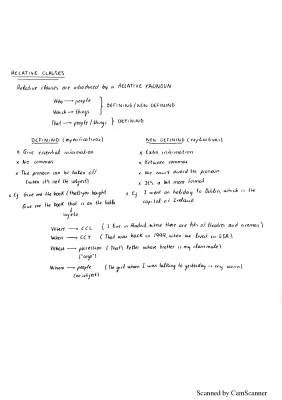 RELATIVE CLAUSES
Relative clauses are introduced by a RELATIVE PRONOUN
Who → people
Which → things
DEFINING/NON DEFINING
That → people/things
DEFINING
DEFINING (especificativas)
NON DEFINING (explicativas)
x Give essential information
x Extra information
x No commas
x Between commas
x The pronoun can be taken off
x We can't avoid the pronoun
(when it's not the subject)
x It's a bit more formal
x Eg Give me the book (that) you bought
x Eg I went on holiday to Dublin, which is the
Give me the book that is on the table
capital of Ireland
sujeto
Where → CCL (I live in Madrid where there are lots of theatres and cinemas)
When → CCT (That was back in 1999, when we lived in USA)
Whose → possession (That's Peter whose brother is my classmate)
Whom → people (The girl whom I was talking to yesterday is my cousin)
(as object)
Scanned by CamScanner